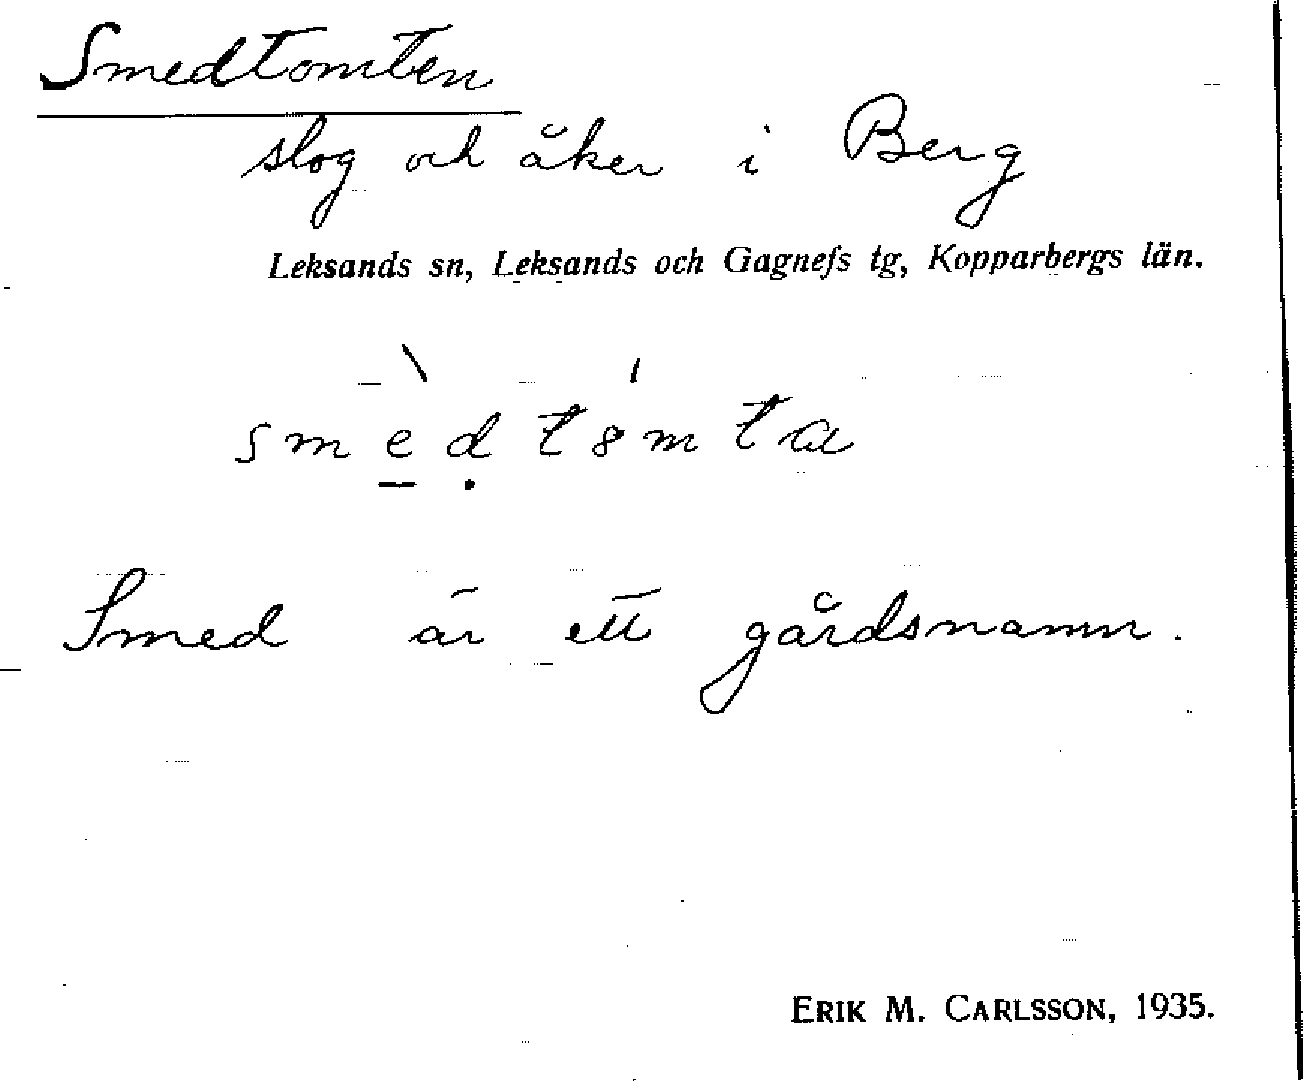 Smedtomten
slog och åker i Berg
Leksands sn, Leksands och Gagnefs tg, Kopparbergs län.
Smed är ett gårdsnamn.
ERIK M. CARLSSON, 1935.